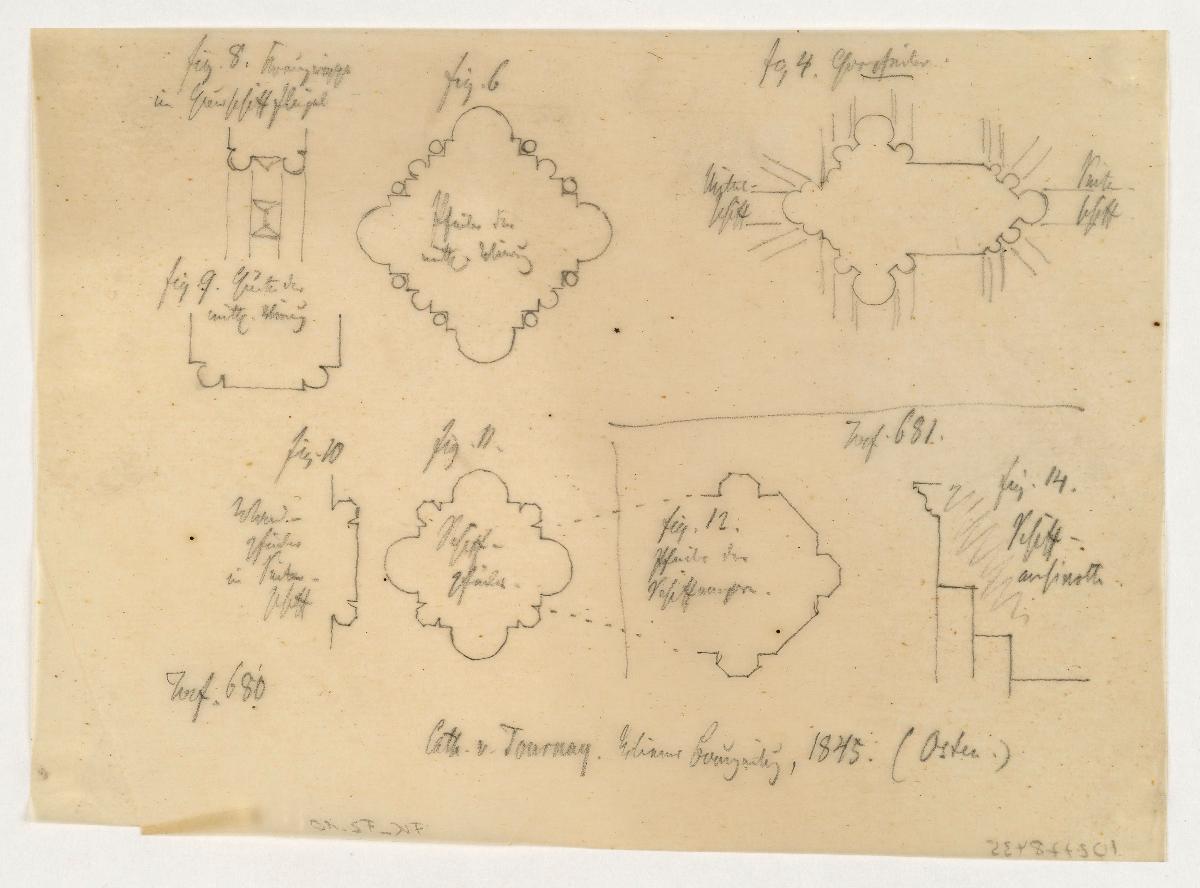 fig. 8. Kreuzrippe
im Querschiffflügel
fig. 6
fig. 4. Chorpfeiler.
Pfeiler der
mittl. Vierung
Mittel-
schiff
Seiten
schiff
fig 9. Gurte der
mittl. Vierung
fig. 10
Wand-
pfeiler
im Seiten-
schiff
fig. 11.
Schiff-
pfeiler.
Taf. 681.
fig. 12.
Pfeiler der
Schiffempore.
fig. 14.
Schiff-
Taf. 680
Cath. v. Tournay. Wiener Bauzeitung, 1845. (Osten.)